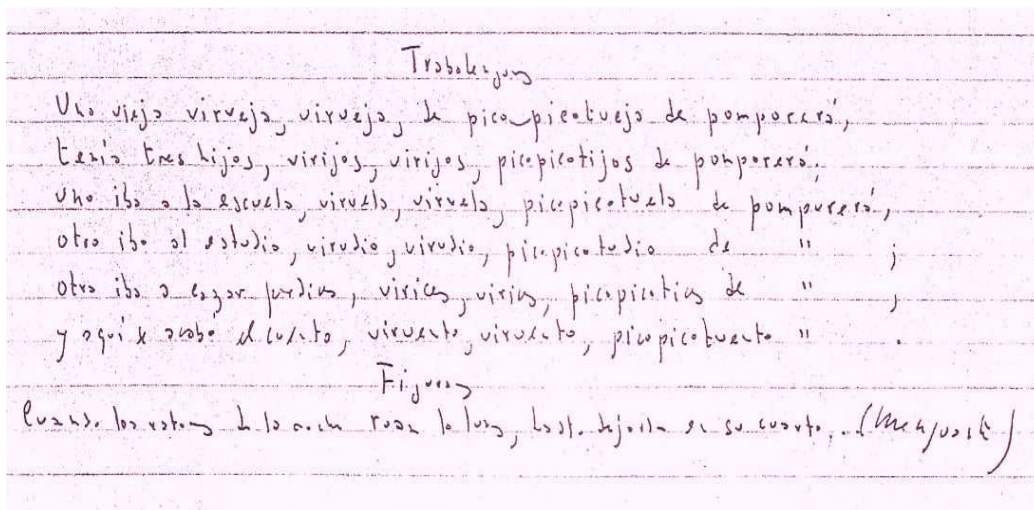 Trabalenguas
Una vieja virueja, virueja, de pico picotueja de pomporerá,
tenía tres hijos, virijos, virijos, picopicotijos de pomporerá;
uno iba a la escuela, viruela, viruela, picopicotuela de pompurerá,
otro iba al estudio, virudio, virudio, picopicotudio de " ;
otro iba a cazar perdices, virices, virices, picopicotices de " ;
y aquí se acabó el cuento, viruento, viruento, picopicotuento " .
Figuras
Cuando los ratones de la noche roen la luna, hasta dejarla en su cuarto... (Menguante)